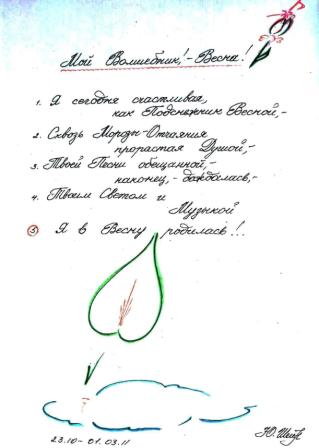 Мой Волшебник!-Весна!
1. Я сегодня счастливая,
как Подснежник Весной,-
2. Сквозь Морозы-Отчаяния
прорастая Душой,-
3. Твоей Песни обещанной,-
наконец,- дождалась,-
4. Твоим Светом и
Музыкой
5 Я в Весну родилась!..
23.10-01.03.11